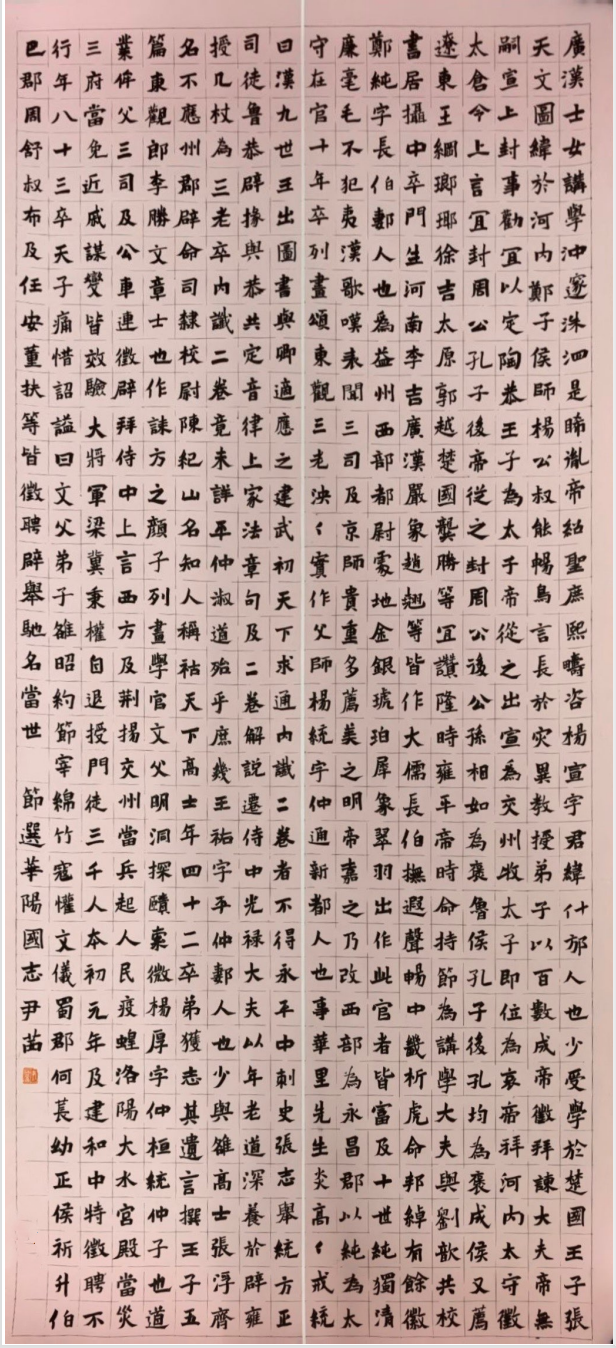 廣漢士女講學沖邃洙泗是睎胤帝紹聖庶熙疇咨楊宣字君緯什邡人也少受學於楚國王子張
天文圖緯於河內鄭子侯師楊公叔能暢鳥言長於災異教授弟子以百數成帝徵拜諫大夫帝無
嗣宣上封事勸宜以定陶恭王子為太子帝從之出宣為交州牧太子即位為哀帝拜河內太守徵
太倉令上言宜封周公孔子後帝從之封周公後公孫相如為褒魯侯孔子後孔均為褒成侯又薦
遼東王綱瑯琊徐吉太原郭越楚國龔勝等宜讚隆時雍平帝時命持節為講學大夫與劉歆共校
書居攝中卒門生河南李吉廣漢嚴象趙翹等皆作大儒長伯撫遐聲暢中畿析虎命邦綽有餘徽
鄭純字長伯郪人也為益州西部都尉處地金銀琥珀犀象翠羽出作此官者皆富及十世純獨清
廉毫毛不犯夷漢歌嘆表聞三司及京師貴重多薦美之明帝嘉之乃改西部為永昌郡以純為太
守在官十年卒列畫頌東觀三老泱〻實作父師楊統字仲通新都人也事華里先生炎高〻戒統
曰漢九世王出圖書與卿適應之建武初天下求通內讖二卷者不得永平中刺史張志舉統方正
司徒魯恭辟掾與恭共定音律上家法章句及二卷解說遷侍中光祿大夫以年老道深養於辟雍
授几杖為三老卒內讖二卷竟未詳平仲淑道殆乎庶幾王祐字平仲郪人也少與雒高士張浮齊
名不應州郡辟命司隸校尉陳紀山名知人稱祜天下高士年四十二卒弟獲志其遺言撰王子五
篇東觀郎李勝文章士也作誄方之顏子列畫學官文父明洞探賾索微楊厚字仲桓統仲子也道
業侔父三司及公車連徵辟拜侍中上言西方及荊揚交州當兵起人民疫蝗洛陽大水宮殿當災
三府當免近戚謀變皆效驗大將軍梁冀秉權自退授門徒三千人本初元年及建和中特徵聘不
行年八十三卒天子痛惜詔諡曰文父弟子雒昭約節宰綿竹寇懽文儀蜀郡何萇幼正侯祈升伯
巴郡周舒叔布及任安董扶等皆徵聘辟舉馳名當世 節選華陽國志尹苗